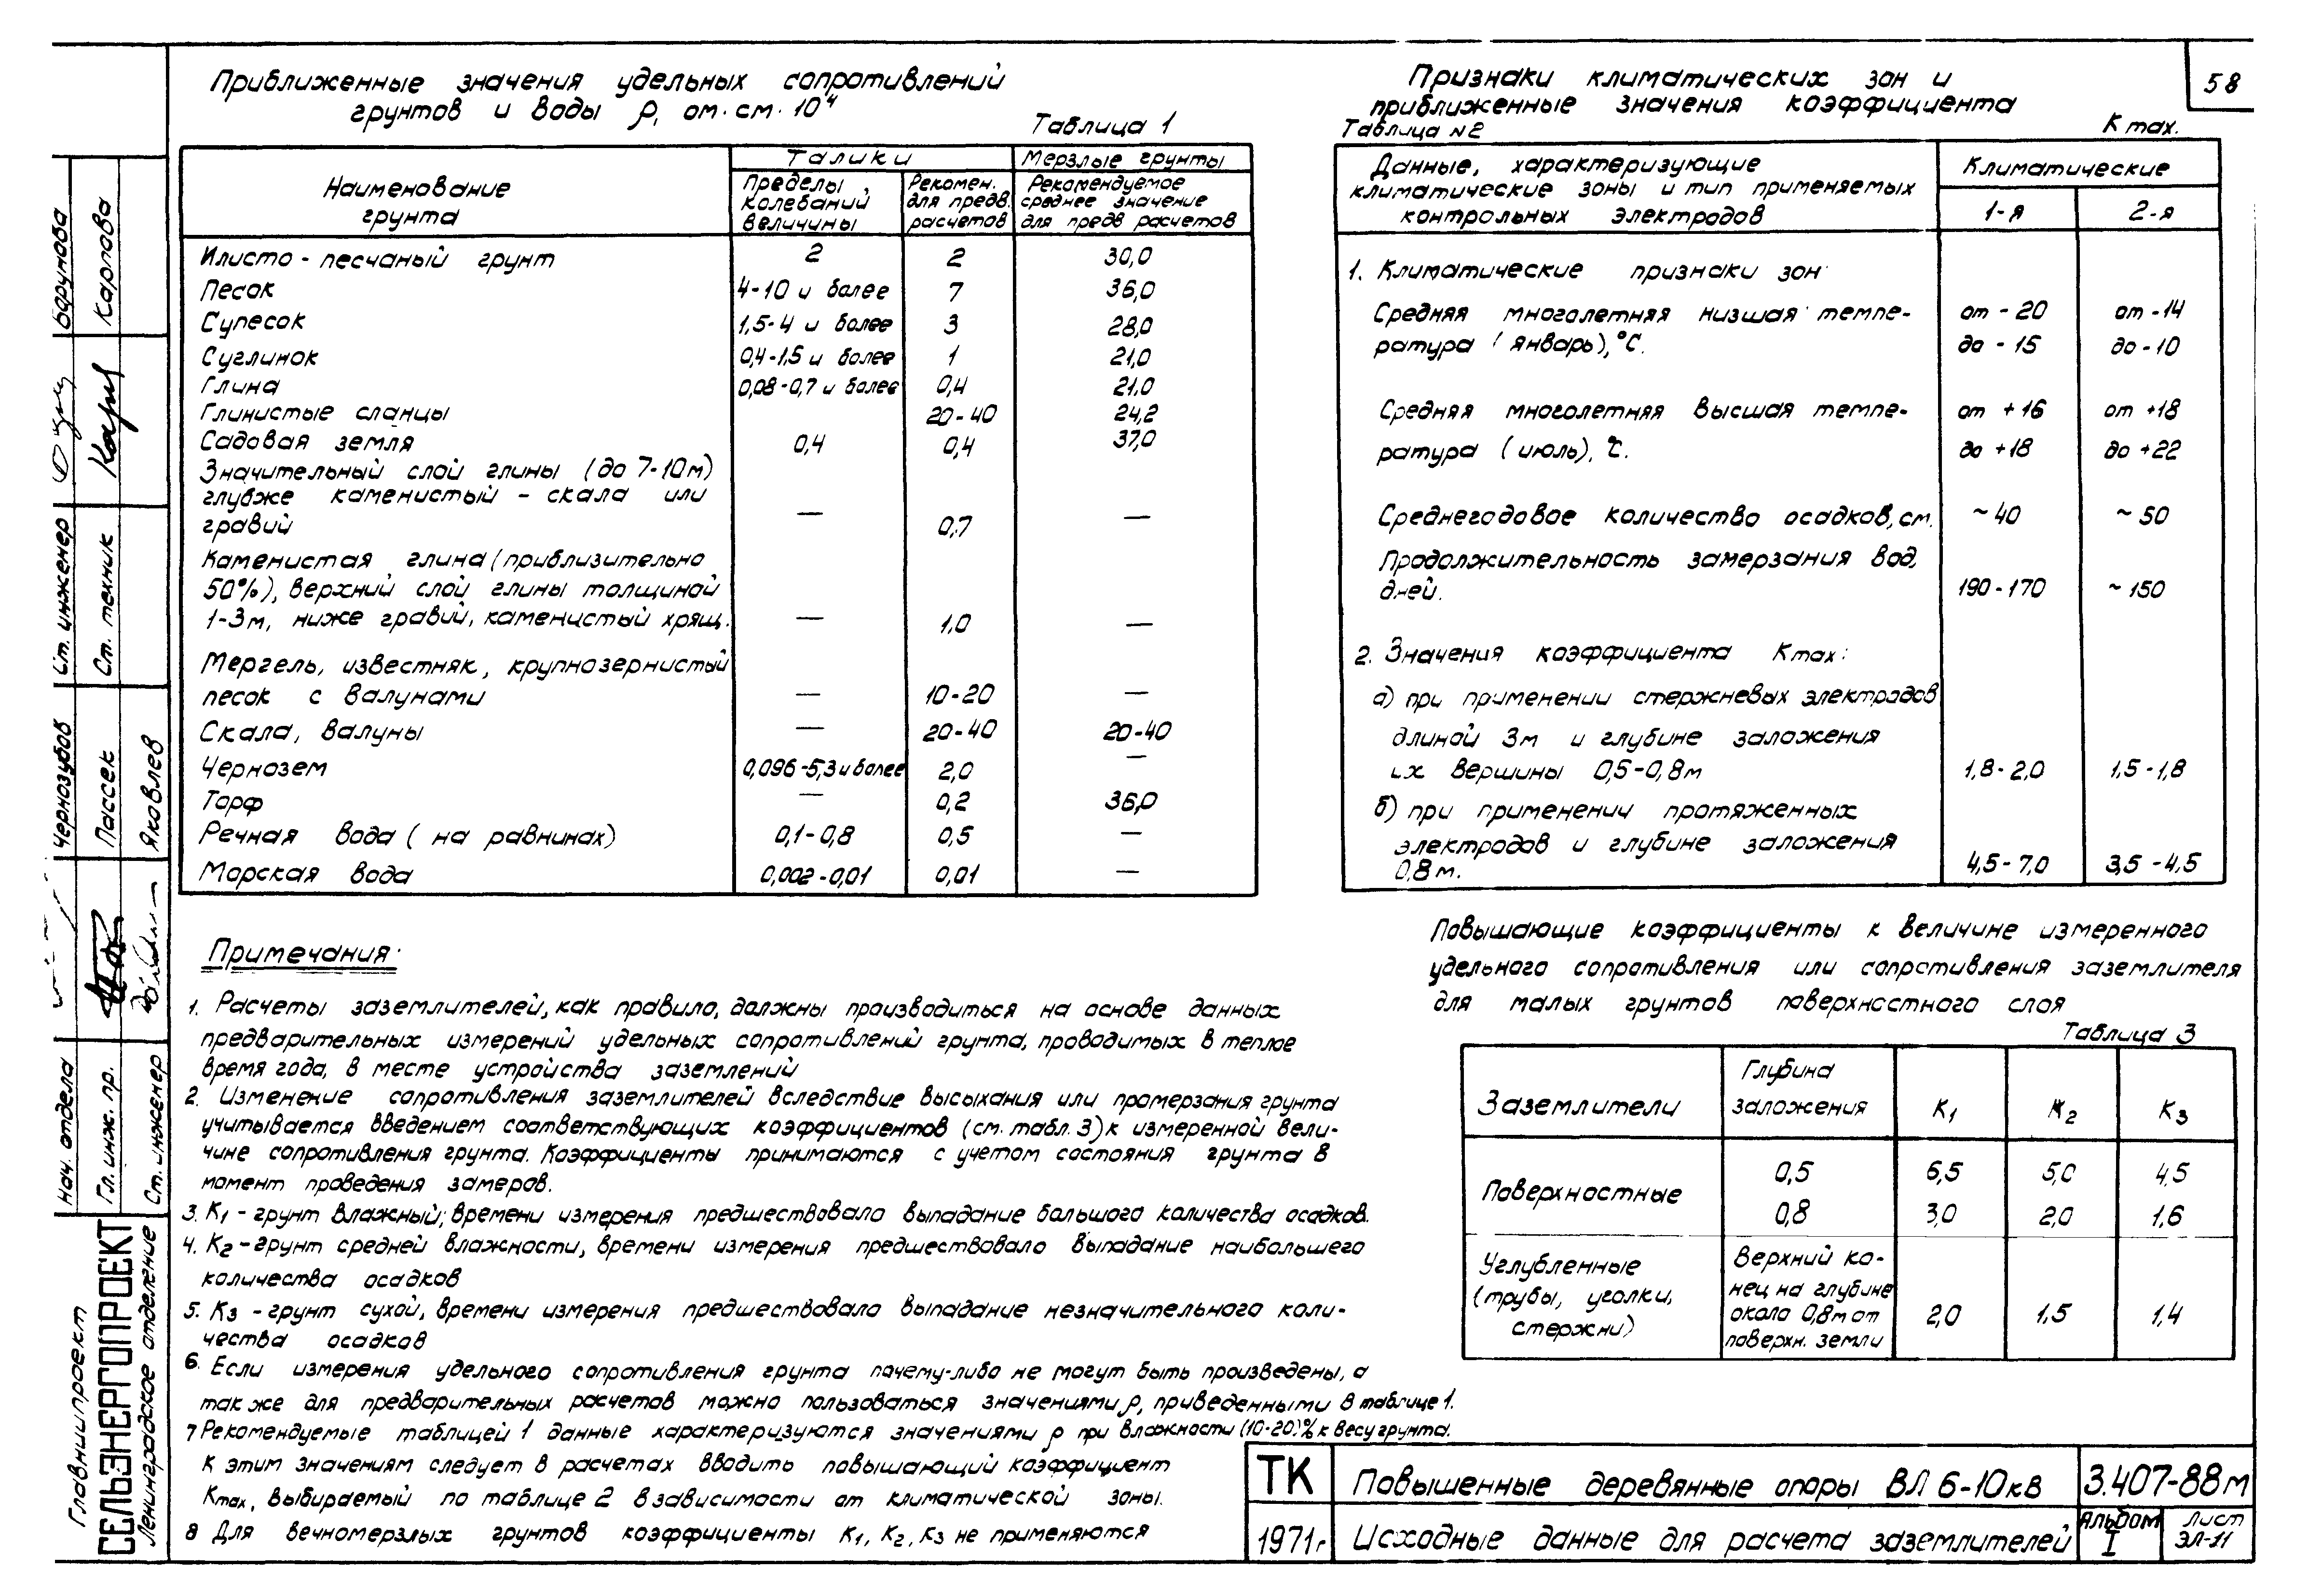 58
Приближенные значения удельных сопротивлений
грунтов и воды ρ, ом·см·10⁴
Таблица 1
Наименование грунта | Талики | Мерзлые грунты
Пределы колебаний величины | Рекомен. для предв. расчетов | Рекомендуемое среднее значение для предв расчетов
Илисто-песчаный грунт | 2 | 2 | 30,0
Песок | 4-10 и более | 7 | 36,0
Супесок | 1,5-4 и более | 3 | 28,0
Суглинок | 0,4-1,5 и более | 1 | 21,0
Глина | 0,08-0,7 и более | 0,4 | 21.0
Глинистые сланцы | 20-40 | 24,2
Садовая земля | 0,4 | 0,4 | 37,0
Значительный слой глины (до 7-10м)
глубже каменистый - скала или
гравий | — | 0,7 | —
Каменистая глина (приблизительно
50%), верхний слой глины толщиной
1-3м, ниже гравий, каменистый хрящ. | — | 1,0 | —
Мергель, известняк, крупнозернистый
песок с валунами | — | 10-20 | —
Скала, валуны | — | 20-40 | 20-40
Чернозем | 0,096-5,3 и более | 2,0 | —
Торф | — | 0,2 | 36,0
Речная вода (на равнинах) | 0,1-0,8 | 0,5 | —
Морская вода | 0,002-0,01 | 0,01 | —
Примечания:
1. Расчеты заземлителей, как правило, должны производиться на основе данных
предварительных измерений удельных сопротивлений грунта, проводимых в теплое
время года, в месте устройства заземлений
2. Изменение сопротивления заземлителей вследствие высыхания или промерзания грунта
учитывается введением соответствующих коэффициентов (см. табл. 3) к измеренной вели-
чине сопротивления грунта. Коэффициенты принимаются с учетом состояния грунта в
момент проведения замеров.
3. К1 - грунт влажный; времени измерения предшествовало выпадание большого количества осадков.
4. К2 - грунт средней влажности, времени измерения предшествовало выпадание наибольшего
количества осадков
5. К3 - грунт сухой, времени измерения предшествовало выпадание незначительного коли-
чества осадков
6. Если измерения удельного сопротивления грунта почему-либо не могут быть произведены, а
так же для предварительных расчетов можно пользоваться значениями ρ, приведенными в таблице 1.
7 Рекомендуемые таблицей 1 данные характеризуются значениями ρ при влажности (10-20)% к весу грунта.
К этим значениям следует в расчетах вводить повышающий коэффициент
Кmax, выбираемый по таблице 2 в зависимости от климатической зоны.
8 Для вечномерзлых грунтов коэффициенты К1, К2, К3 не применяются
Признаки климатических зон и
приближенные значения коэффициента
Таблица N2
К max.
Данные, характеризующие климатические зоны и тип применяемых контрольных электродов | Климатические
1-я | 2-я
1. Климатические признаки зон:
Средняя многолетняя низшая темпе- | от - 20 | от -14
ратура (январь), °С. | до - 15 | до -10
Средняя многолетняя высшая темпе- | от + 16 | от +18
ратура (июль), °С. | до +18 | до +22
Среднегодовое количество осадков, см. | ~ 40 | ~ 50
Продолжительность замерзания вод,
дней. | 190-170 | ~ 150
2. Значения коэффициента Кmax:
а) при применении стержневых электродов
длиной 3м и глубине заложения
их вершины 0,5-0,8м | 1,8-2,0 | 1,5-1,8
б) при применении протяженных
электродов и глубине заложения
0,8м. | 4,5-7,0 | 3,5-4,5
Повышающие коэффициенты к величине измеренного
удельного сопротивления или сопротивления заземлителя
для малых грунтов поверхностного слоя
Таблица 3
Заземлители | Глубина заложения | К1 | К2 | К3
Поверхностные | 0,5 | 6,5 | 5,0 | 4,5
0,8 | 3,0 | 2,0 | 1,6
Углубленные (трубы, уголки, стержни) | Верхний ко-нец на глубине около 0,8м от поверхн. земли | 2,0 | 1,5 | 1,4
ТК | Повышенные деревянные опоры ВЛ 6-10кв | 3.407-88м
1971г | Исходные данные для расчета заземлителей | Альбом I | Лист ЭЛ-11
Главниипроект
СЕЛЬЭНЕРГОПРОЕКТ
Ленинградское отделение
Нач. отдела Чернозубов
Гл. инж. пр. Пассек
Ст. инженер Яковлев
Ст. инженер
Ст. техник Карпова